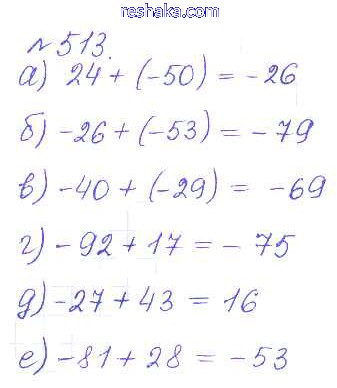 www.reshaka.com
№ 513.
а) 24 + (-50) = -26
б) -26 + (-53) = -79
в) -40 + (-29) = -69
г) -92 + 17 = -75
д) -27 + 43 = 16
е) -81 + 28 = -53